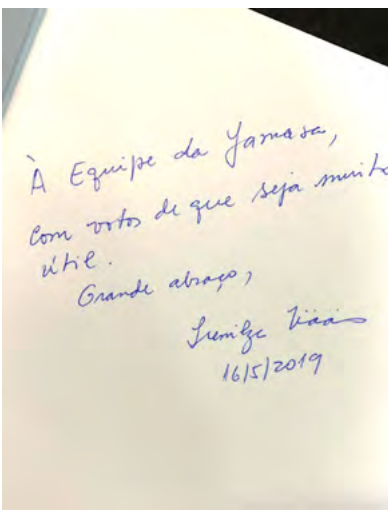 À Equipe da Yamasa,
com votos de que seja muito
útil.
Grande abraço,
16/5/2019